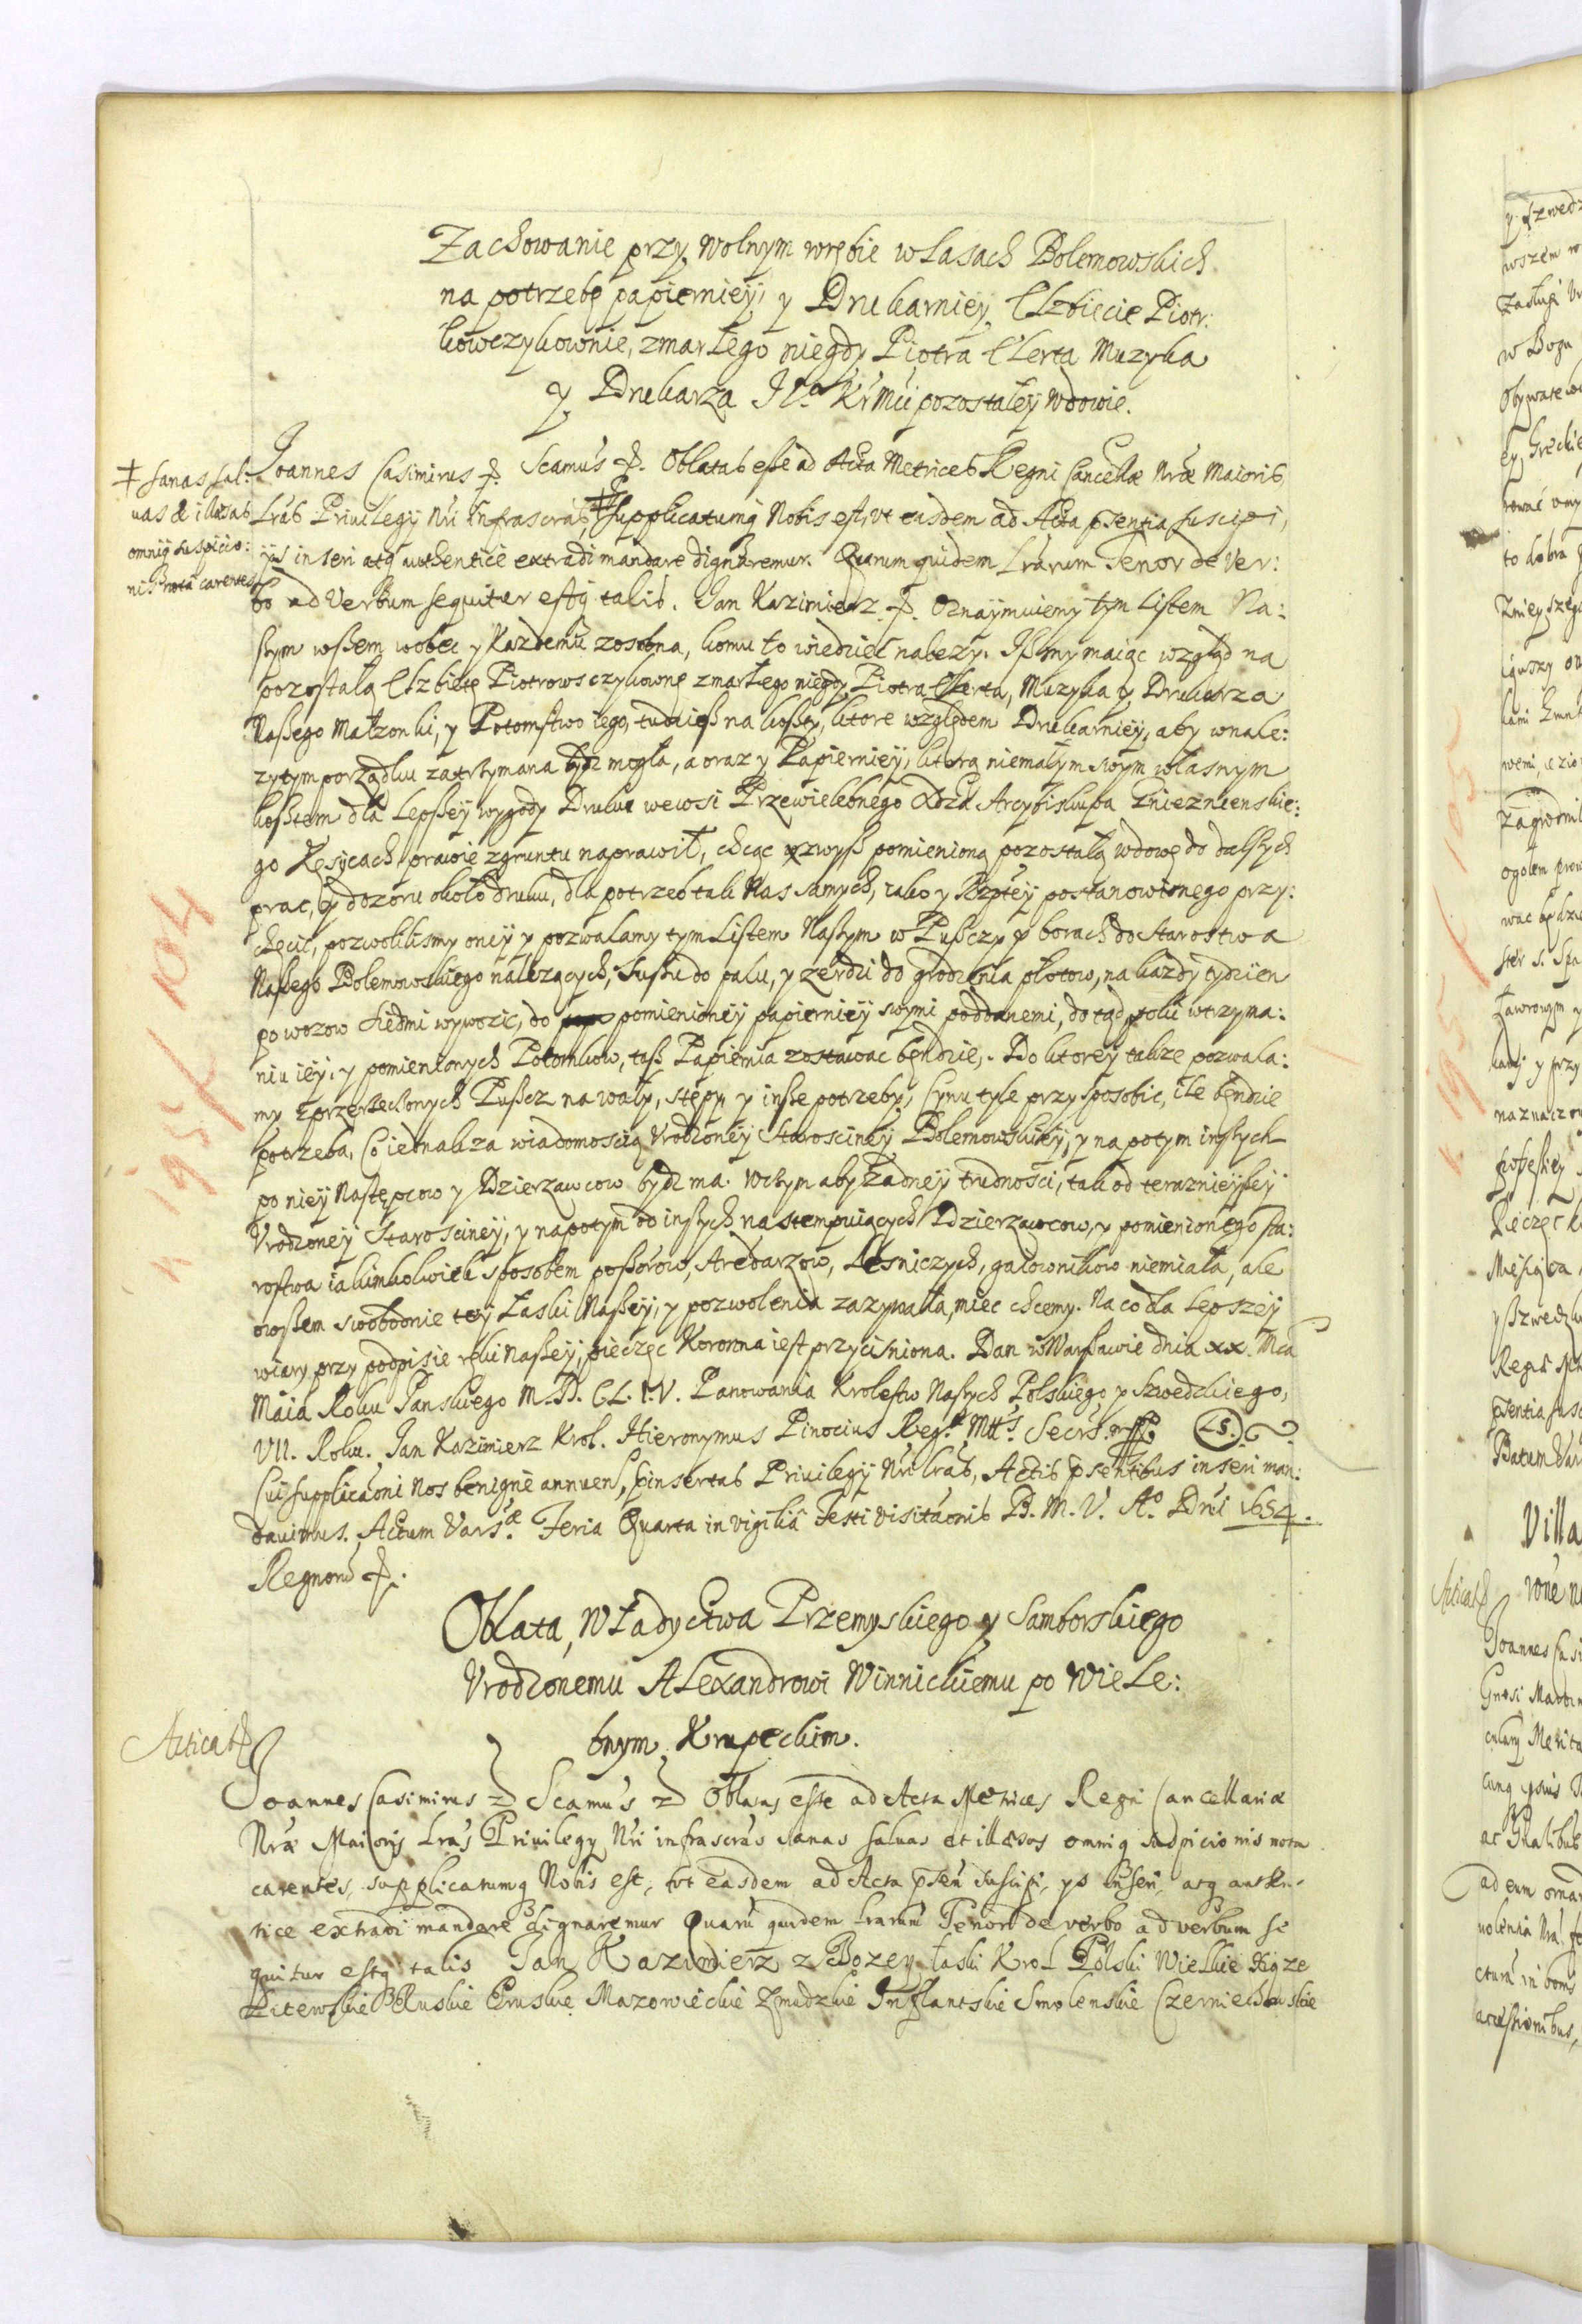 Zachowanie przy wolnym wrębie w Lasach Bolemowskich
na potrzebę papierniey, y Drukarniey, Elzbiecie Piotr:
kowczykownie, zmarłego niegdy Piotra Elerta Muzyka
y Drukarza J. Kr Mći pozostałey wdowie.
Joannes Casimirus Scamus Oblatas esse ad Acta Metrices Regni Cancellae Nrae Maioris
‡ sanas sal:
uas & illaesas
omniq suspicio:
nis nota carentes
Lras Priuilegij Nri infrascras, ‡ supplicatumq Nobis est, vt easdem ad Acta psentia suscipi,
ijs inseri atq authentice extradi mandare dignaremur. Quarum quidem Lrarum Tenor de Ver:
bo ad Verbum sequitur estq talis. Jan Kazimierz Oznaymuiemy tym Listem Na:
szym wszem wobec y Kazdemu zosobna, komu to wiedziec nalezy. Iz my maiąc wzgląd na
pozostałą Elzbietę Piotrowczykownę zmarłego niegdy Piotra Elerta, Muzyka y Drukarza
Naszego Małzonki, y Potomstwo iego, tudziesz na koszty, ktore względem Drukarniey, aby wnale:
zytym porządku zatrzymana bydz mogła, a oraz y Papierniey, ktorą niemałym swym własnym
kosztem dla Lepszey wygody Druku wewsi Przewielebnego Xdza Arcybiskupa Gnieznienskie:
go Kęsicach prawie zgruntu naprawił, chcąc zwysz pomienioną pozostałą wdowę do dalszych
prac, y dozoru około druku, dla potrzeb tak Nas samych, iako y Rzptey postanowionego przy:
chęcić, pozwolilismy oney y pozwalamy tym Listem Naszym w Puszczy y borach do Starostwa
Naszego Bolemowskiego nalezących, Suszu do palu, y zerdzi do grodzenia płotow, na kazdy tydzien
po wozow siedmi wywozic, do pomienioney papierniey swymi poddanemi, dotąd poki wtrzyma:
niu iey, y pomienionych Potomkow, tasz Papiernia zostawac będzie. Do ktorey takze pozwala:
my zprzerzeczonych Puszcz na wały, stępy y insze potrzeby, Cynu tyle przysposobic, ile będzie
potrzeba, Co iednak za wiadomoscią Vrodzoney Starosciney Bolemowskiey, y na potym inszych
po niey Następcow y Dzierzawcow bydz ma. Wczym aby zadney trudnosci, tak od teraznieyszey
Vrodzoney Starosciney, y napotym od inszych nastempuiących Dzierzawcow, y pomienionego sta:
rostwa iakimkolwiek sposobem possorow, Aredarzow, Lesniczych, gaiownikow niemiała, ale
owszem swobodnie tey Łaski Naszey, y pozwolenia zazywała, miec chcemy. Na co dla Lepszey
wiary przy podpisie ręki Naszey, pieczęc Koronna iest przycisniona. Dan w Warszawie dnia xx. Mca
Maia Roku Panskiego M. D. CL. IV. Panowania Krolestw Naszych Polskiego y Szwedzkiego,
VII. Roku. Jan Kazimierz Krol. Hieronymus Pinocius Reg. Mtts. Secrs. mpp. LS.
Cui supplicaoni Nos benigne annuen, pinsertas Priuilegij Nri lras, Actis psentibus inseri man:
dauimus. Actum Vars. Feria Quarta in vigilia Festi visitaonis B. M. V. Ao Dni 1654.
Regnoru
Oblata, Władyctwa Przemyskiego y Samborskiego
Vrodzonemu Alexandrowi Winnickiemu po Wiele:
bnym Krupeckim.
Acticat
Joannes Casimirus Scamus Oblatas esse ad Acta Metrices Regni Cancellariae
Nrae Maioris Lras Priuilegij Nri infrascras sanas saluas et illaesas omniq suspicionis nota
carentes, supplicatumq Nobis est, vt easdem ad Acta psen suscipi, ys inseri, atq authen:
tice extradi mandare dignaremur Quaru quidem lraru Tenor de verbo ad verbum se
quitur estq talis Jan Kazimierz z Bozey łaski Krol Polski Wielkie Xiąze
Litewskie Ruskie Pruskie Mazowieckie Zmudzkie Inflantskie Smolenskie Czerniechowskie
k 195 f 104